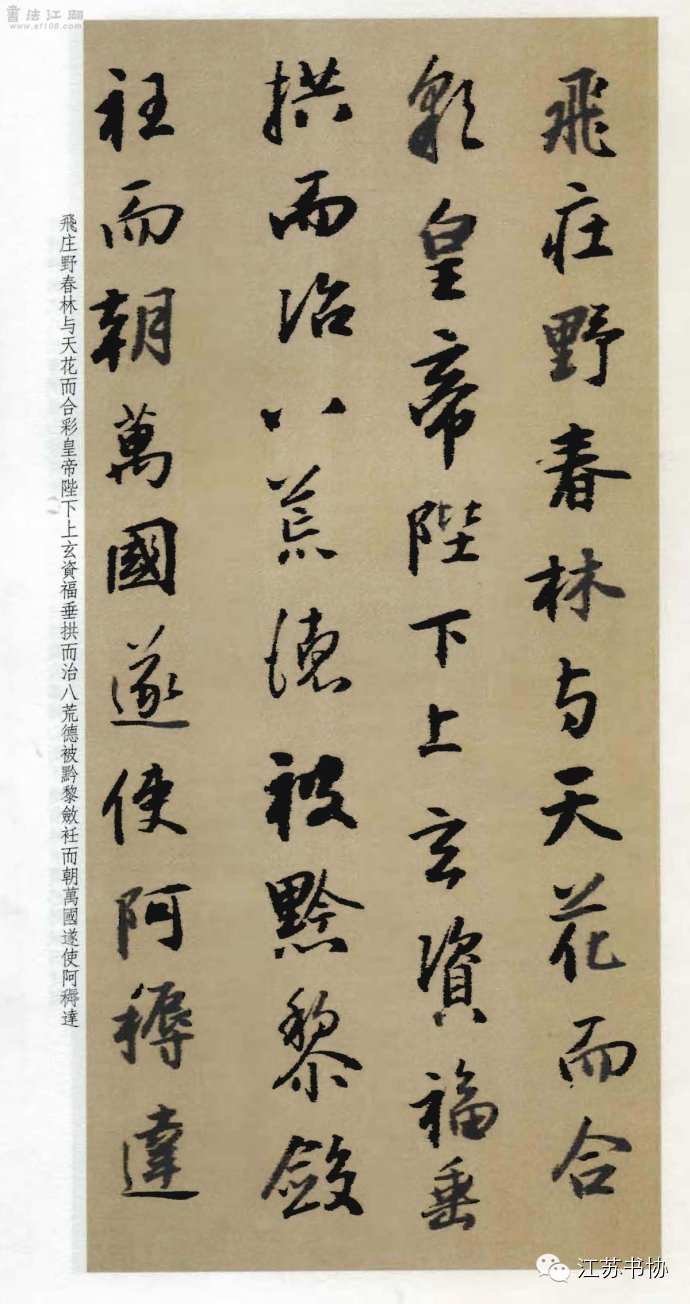 飛庄野春林与天花而合
彩皇帝陛下上玄資福垂
拱而冶八荒德被黔黎斂
衽而朝萬國遂使阿耨達
飛庄野春林与天花而合彩皇帝陛下上玄資福垂拱而冶八荒德被黔黎斂衽而朝萬國遂使阿耨達
書法江湖
www.sf108.com
江苏书协